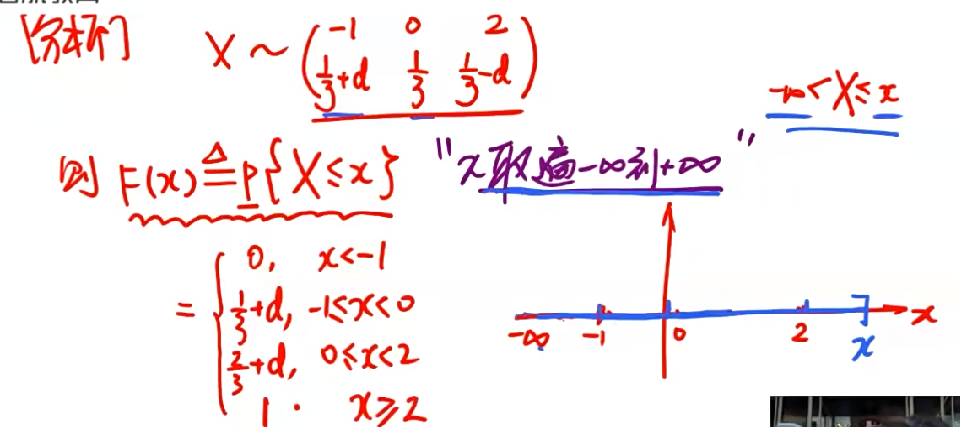 [分析] X ~ ( -1 0 2
1/3+d 1/3 1/3-d )
-∞<X≤x
则 F(x) ≜ P{X≤x} "x取遍-∞到+∞"
= { 0, x<-1
1/3+d, -1≤x<0
2/3+d, 0≤x<2
1. x≥2
-∞ -1 0 2 x x